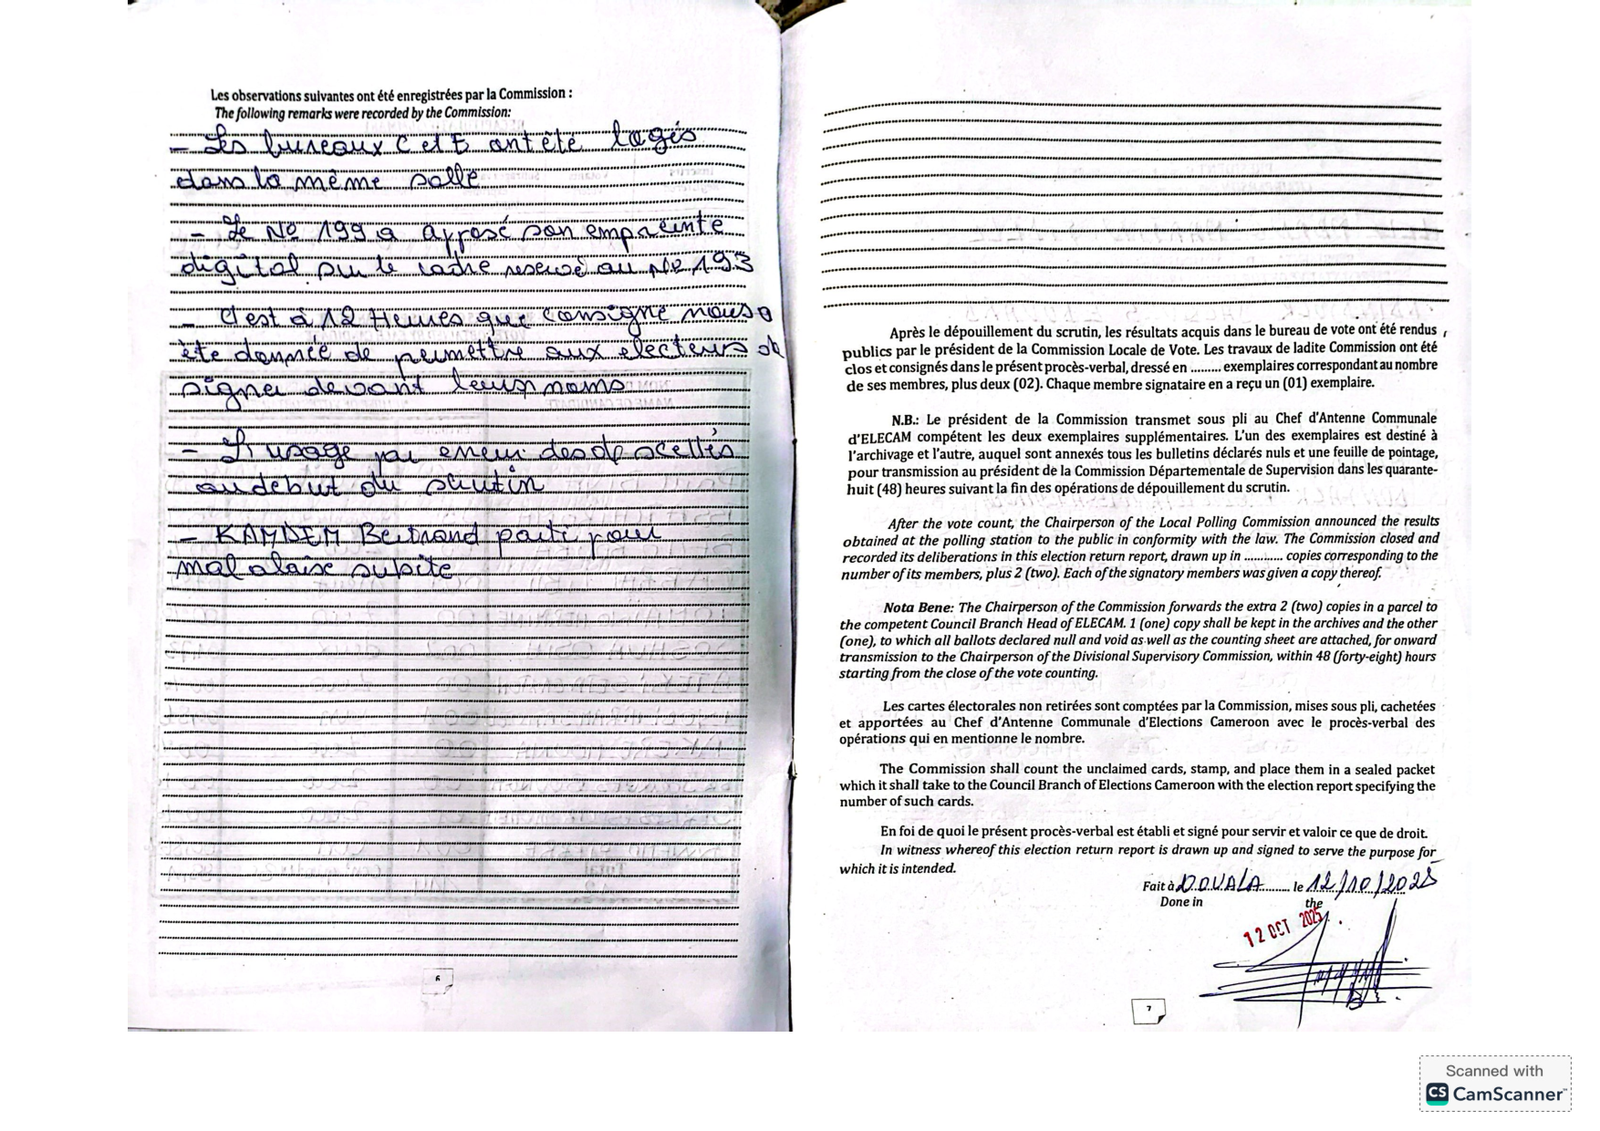 Les observations suivantes ont été enregistrées par la Commission :
The following remarks were recorded by the Commission:
- Les bureaux C et E ont été logés
dans la même salle
- Le No 199 a apposé son empreinte
digital sur le cadre reservé au No 193
- C'est à 12 Heures que consigne nous a
été donnée de permettre aux electeurs de
signer devant leurs noms
- L'usage par erreur des scellés
au debut du scrutin
- KAMDEM Bertrand parti pour
mal alaise subite
6
Après le dépouillement du scrutin, les résultats acquis dans le bureau de vote ont été rendus
publics par le président de la Commission Locale de Vote. Les travaux de ladite Commission ont été
clos et consignés dans le présent procès-verbal, dressé en ......... exemplaires correspondant au nombre
de ses membres, plus deux (02). Chaque membre signataire en a reçu un (01) exemplaire.
N.B.: Le président de la Commission transmet sous pli au Chef d'Antenne Communale
d'ELECAM compétent les deux exemplaires supplémentaires. L'un des exemplaires est destiné à
l'archivage et l'autre, auquel sont annexés tous les bulletins déclarés nuls et une feuille de pointage,
pour transmission au président de la Commission Départementale de Supervision dans les quarante-
huit (48) heures suivant la fin des opérations de dépouillement du scrutin.
After the vote count, the Chairperson of the Local Polling Commission announced the results
obtained at the polling station to the public in conformity with the law. The Commission closed and
recorded its deliberations in this election return report, drawn up in ............ copies corresponding to the
number of its members, plus 2 (two). Each of the signatory members was given a copy thereof.
Nota Bene: The Chairperson of the Commission forwards the extra 2 (two) copies in a parcel to
the competent Council Branch Head of ELECAM. 1 (one) copy shall be kept in the archives and the other
(one), to which all ballots declared null and void as well as the counting sheet are attached, for onward
transmission to the Chairperson of the Divisional Supervisory Commission, within 48 (forty-eight) hours
starting from the close of the vote counting.
Les cartes électorales non retirées sont comptées par la Commission, mises sous pli, cachetées
et apportées au Chef d'Antenne Communale d'Elections Cameroon avec le procès-verbal des
opérations qui en mentionne le nombre.
The Commission shall count the unclaimed cards, stamp, and place them in a sealed packet
which it shall take to the Council Branch of Elections Cameroon with the election report specifying the
number of such cards.
En foi de quoi le présent procès-verbal est établi et signé pour servir et valoir ce que de droit.
In witness whereof this election return report is drawn up and signed to serve the purpose for
which it is intended.
Fait à DOUALA ......... le 12/10/2025
Done in the
12 OCT 2025
7
Scanned with
CS CamScanner